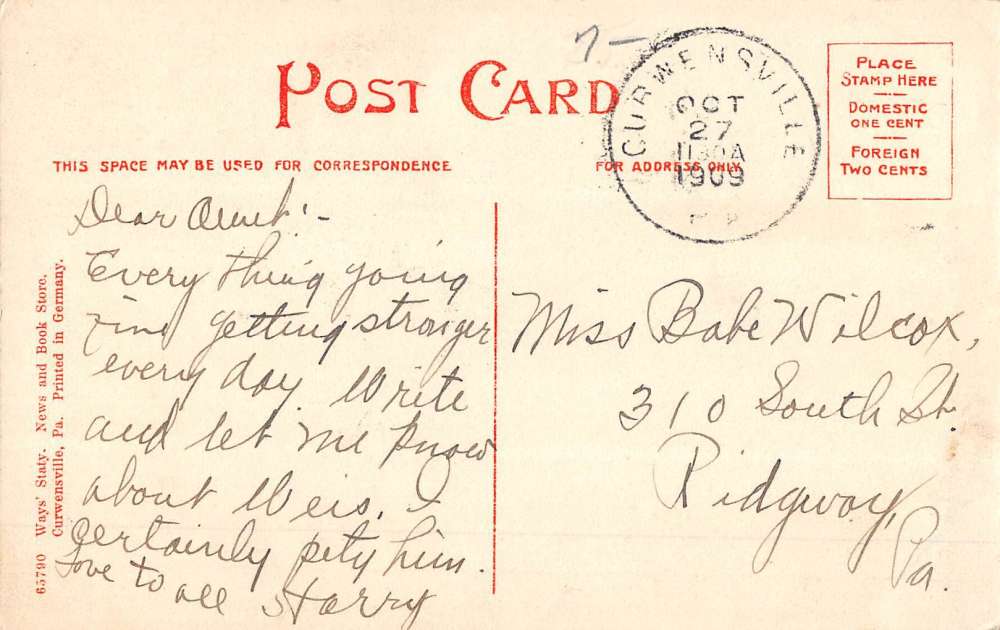 7-
POST CARD
CURWENSVILLE
OCT
27
1130A
1909
PLACE
STAMP HERE
DOMESTIC
ONE CENT
FOREIGN
TWO CENTS
THIS SPACE MAY BE USED FOR CORRESPONDENCE
FOR ADDRESS ONLY
Dear Aunt:-
Every thing going
fine getting stronger
every day. Write
and let me know
about Weis. I
certainly pity him.
Love to all Harry
Miss Babe Wilcox,
310 South St.
Ridgway,
Pa.
65790 Ways' Staty. News and Book Store.
Curwensville, Pa. Printed in Germany.